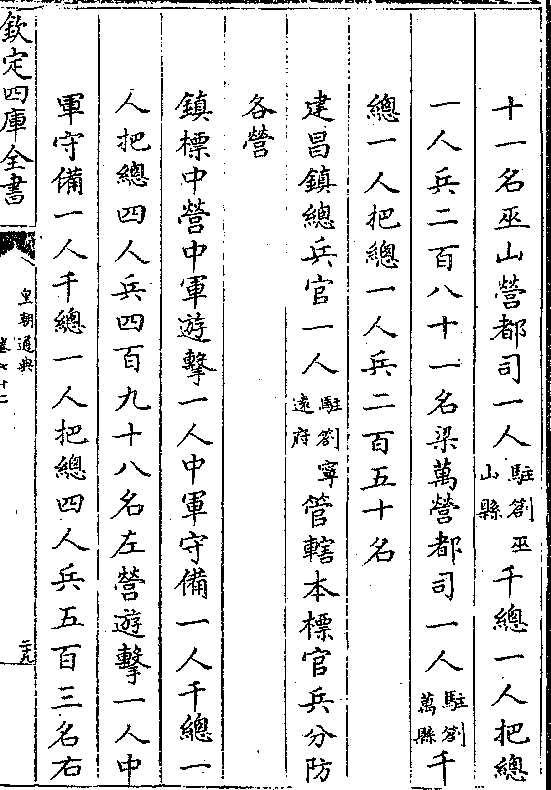 十一名巫山營都司一人駐劄巫山縣千總一人把總
一人兵二百八十一名梁萬營都司一人駐劄萬縣千
總一人把總一人兵二百五十名
建昌鎮總兵官一人駐劄寧遠府管轄本標官兵分防
各營
鎮標中營中軍遊擊一人中軍守備一人千總一
人把總四人兵四百九十八名左營遊擊一人中
軍守備一人千總一人把總四人兵五百三名右
欽定四庫全書
皇朝通典
卷七十二
二十九